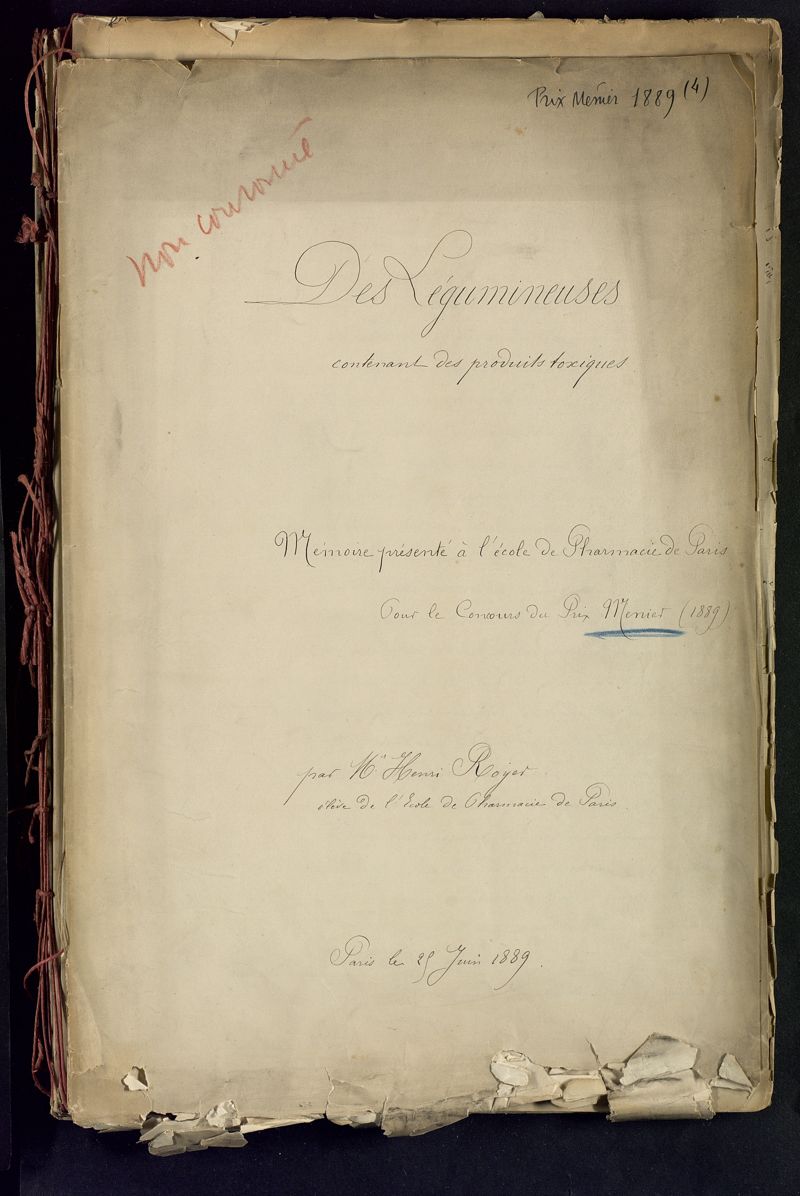 Prix Menier 1889 (4)
non couronné
Des Légumineuses
contenant des produits toxiques
Mémoire présenté à l'école de Pharmacie de Paris
Pour le Concours du Prix Menier (1889)
par Mr Henri Royer
élève de l'Ecole de Pharmacie de Paris.
Paris le 25 Juin 1889.